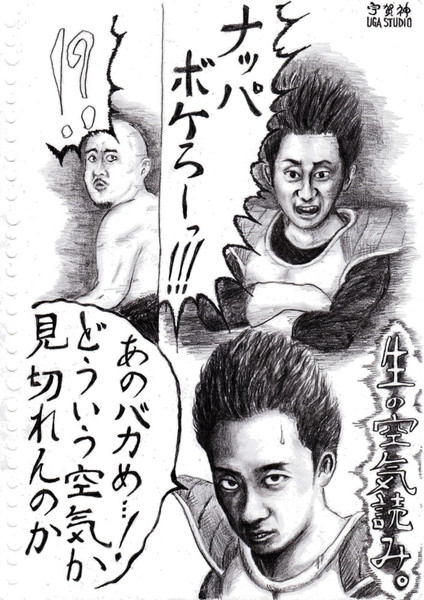 宇賀神
UGA STUDIO
ナッパ
ボケろーっ!!!
!?!!
あのバカめ…!
どういう空気か
見切れんのか
生の空気読み。